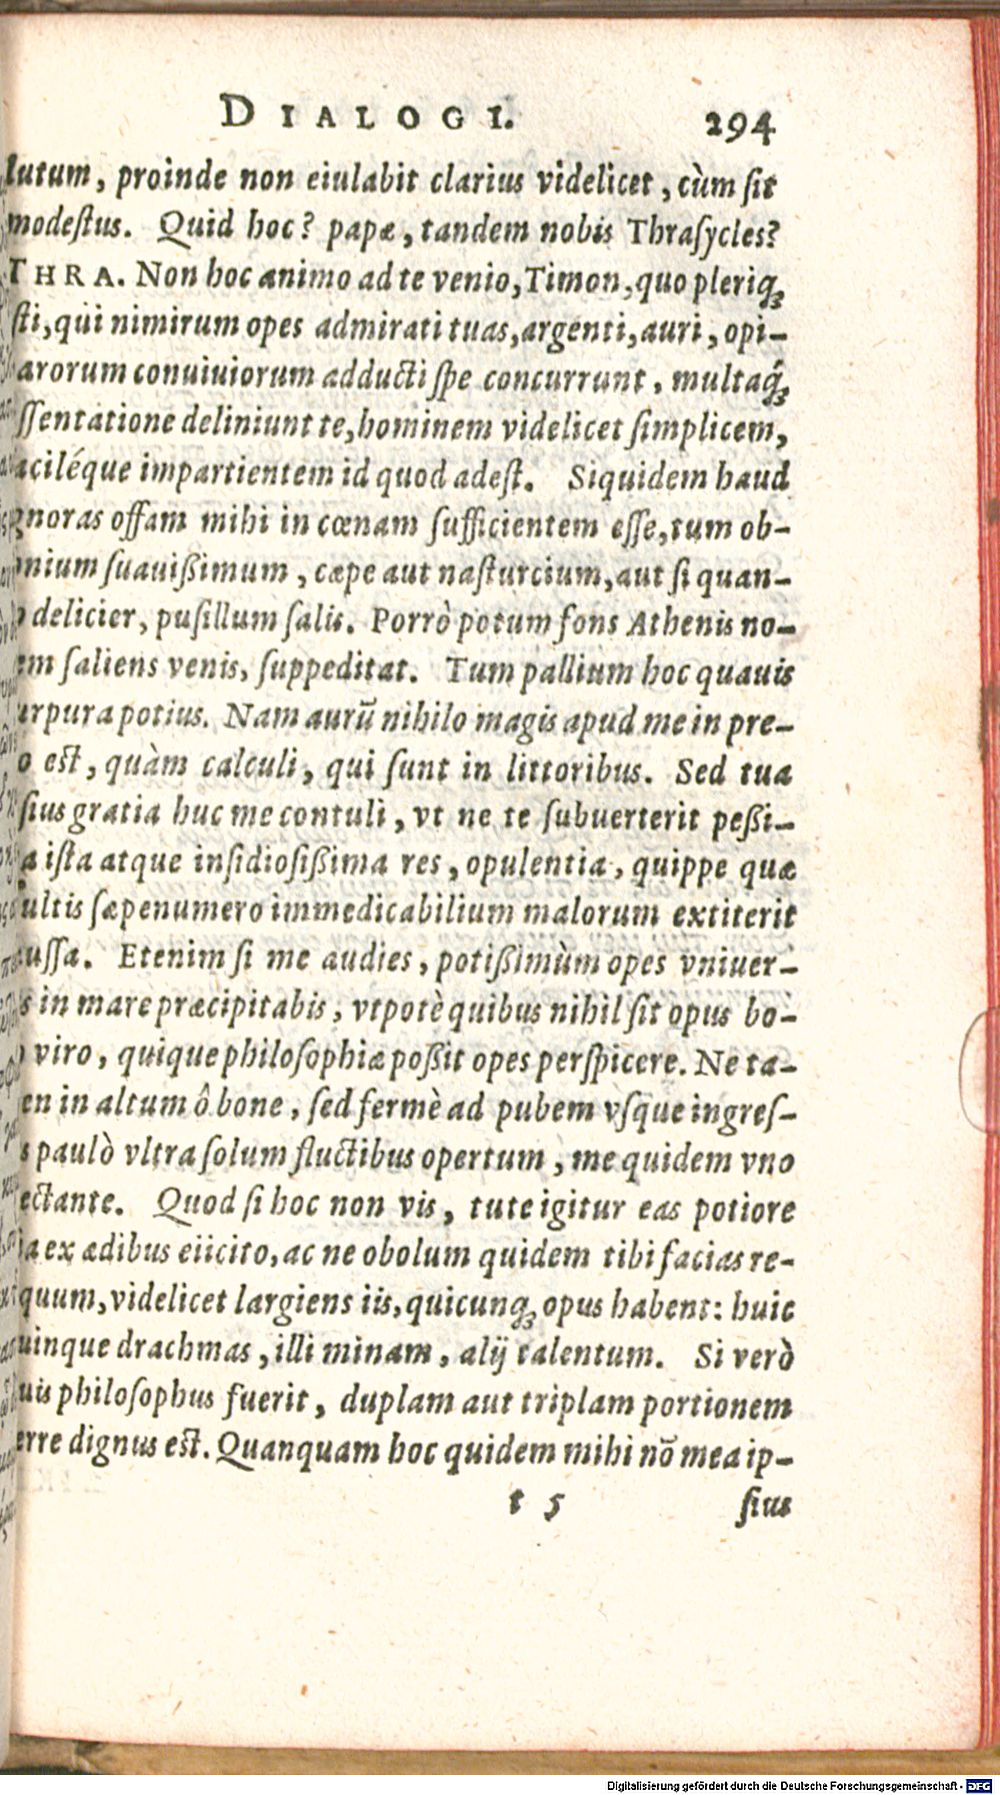 DIALOGI. 294
lutum, proinde non eiulabit clarius videlicet, cùm ſit
modeſtus. Quid hoc? papæ, tandem nobis Thraſycles?
THRA. Non hoc animo ad te venio, Timon, quo pleriq;
ſti, qui nimirum opes admirati tuas, argenti, auri, opi-
arorum conuiuiorum adducti ſpe concurrunt, multaq́;
ſſentatione deliniunt te, hominem videlicet ſimplicem,
aciléque impartientem id quod adeſt. Siquidem haud
gnoras offam mihi in cœnam ſufficientem eſſe, tum ob-
nium ſuauißimum, cæpe aut naſturcium, aut ſi quan-
o delicier, puſillum ſalis. Porrò potum fons Athenis no-
em ſaliens venis, ſuppeditat. Tum pallium hoc quauis
urpura potius. Nam aurū nihilo magis apud me in pre-
o eſt, quàm calculi, qui ſunt in littoribus. Sed tua
ſius gratia huc me contuli, vt ne te ſubuerterit peßi-
a iſta atque inſidioſißima res, opulentia, quippe quæ
ultis ſæpenumero immedicabilium malorum extiterit
uſſa. Etenim ſi me audies, potißimùm opes vniuer-
s in mare præcipitabis, vtpotè quibus nihil ſit opus bo-
o viro, quique philoſophiæ poßit opes perſpicere. Ne ta-
en in altum ô bone, ſed fermè ad pubem vſque ingreſ-
s paulò vltra ſolum fluctibus opertum, me quidem vno
ectante. Quod ſi hoc non vis, tute igitur eas potiore
ia ex ædibus eiicito, ac ne obolum quidem tibi facias re-
quum, videlicet largiens iis, quicunq; opus habent: huic
uinque drachmas, illi minam, alij talentum. Si verò
uis philoſophus fuerit, duplam aut triplam portionem
erre dignus eſt. Quanquam hoc quidem mihi nō mea ip-
t 5 ſius
Digitalisierung gefördert durch die Deutsche Forschungsgemeinschaft - DFG